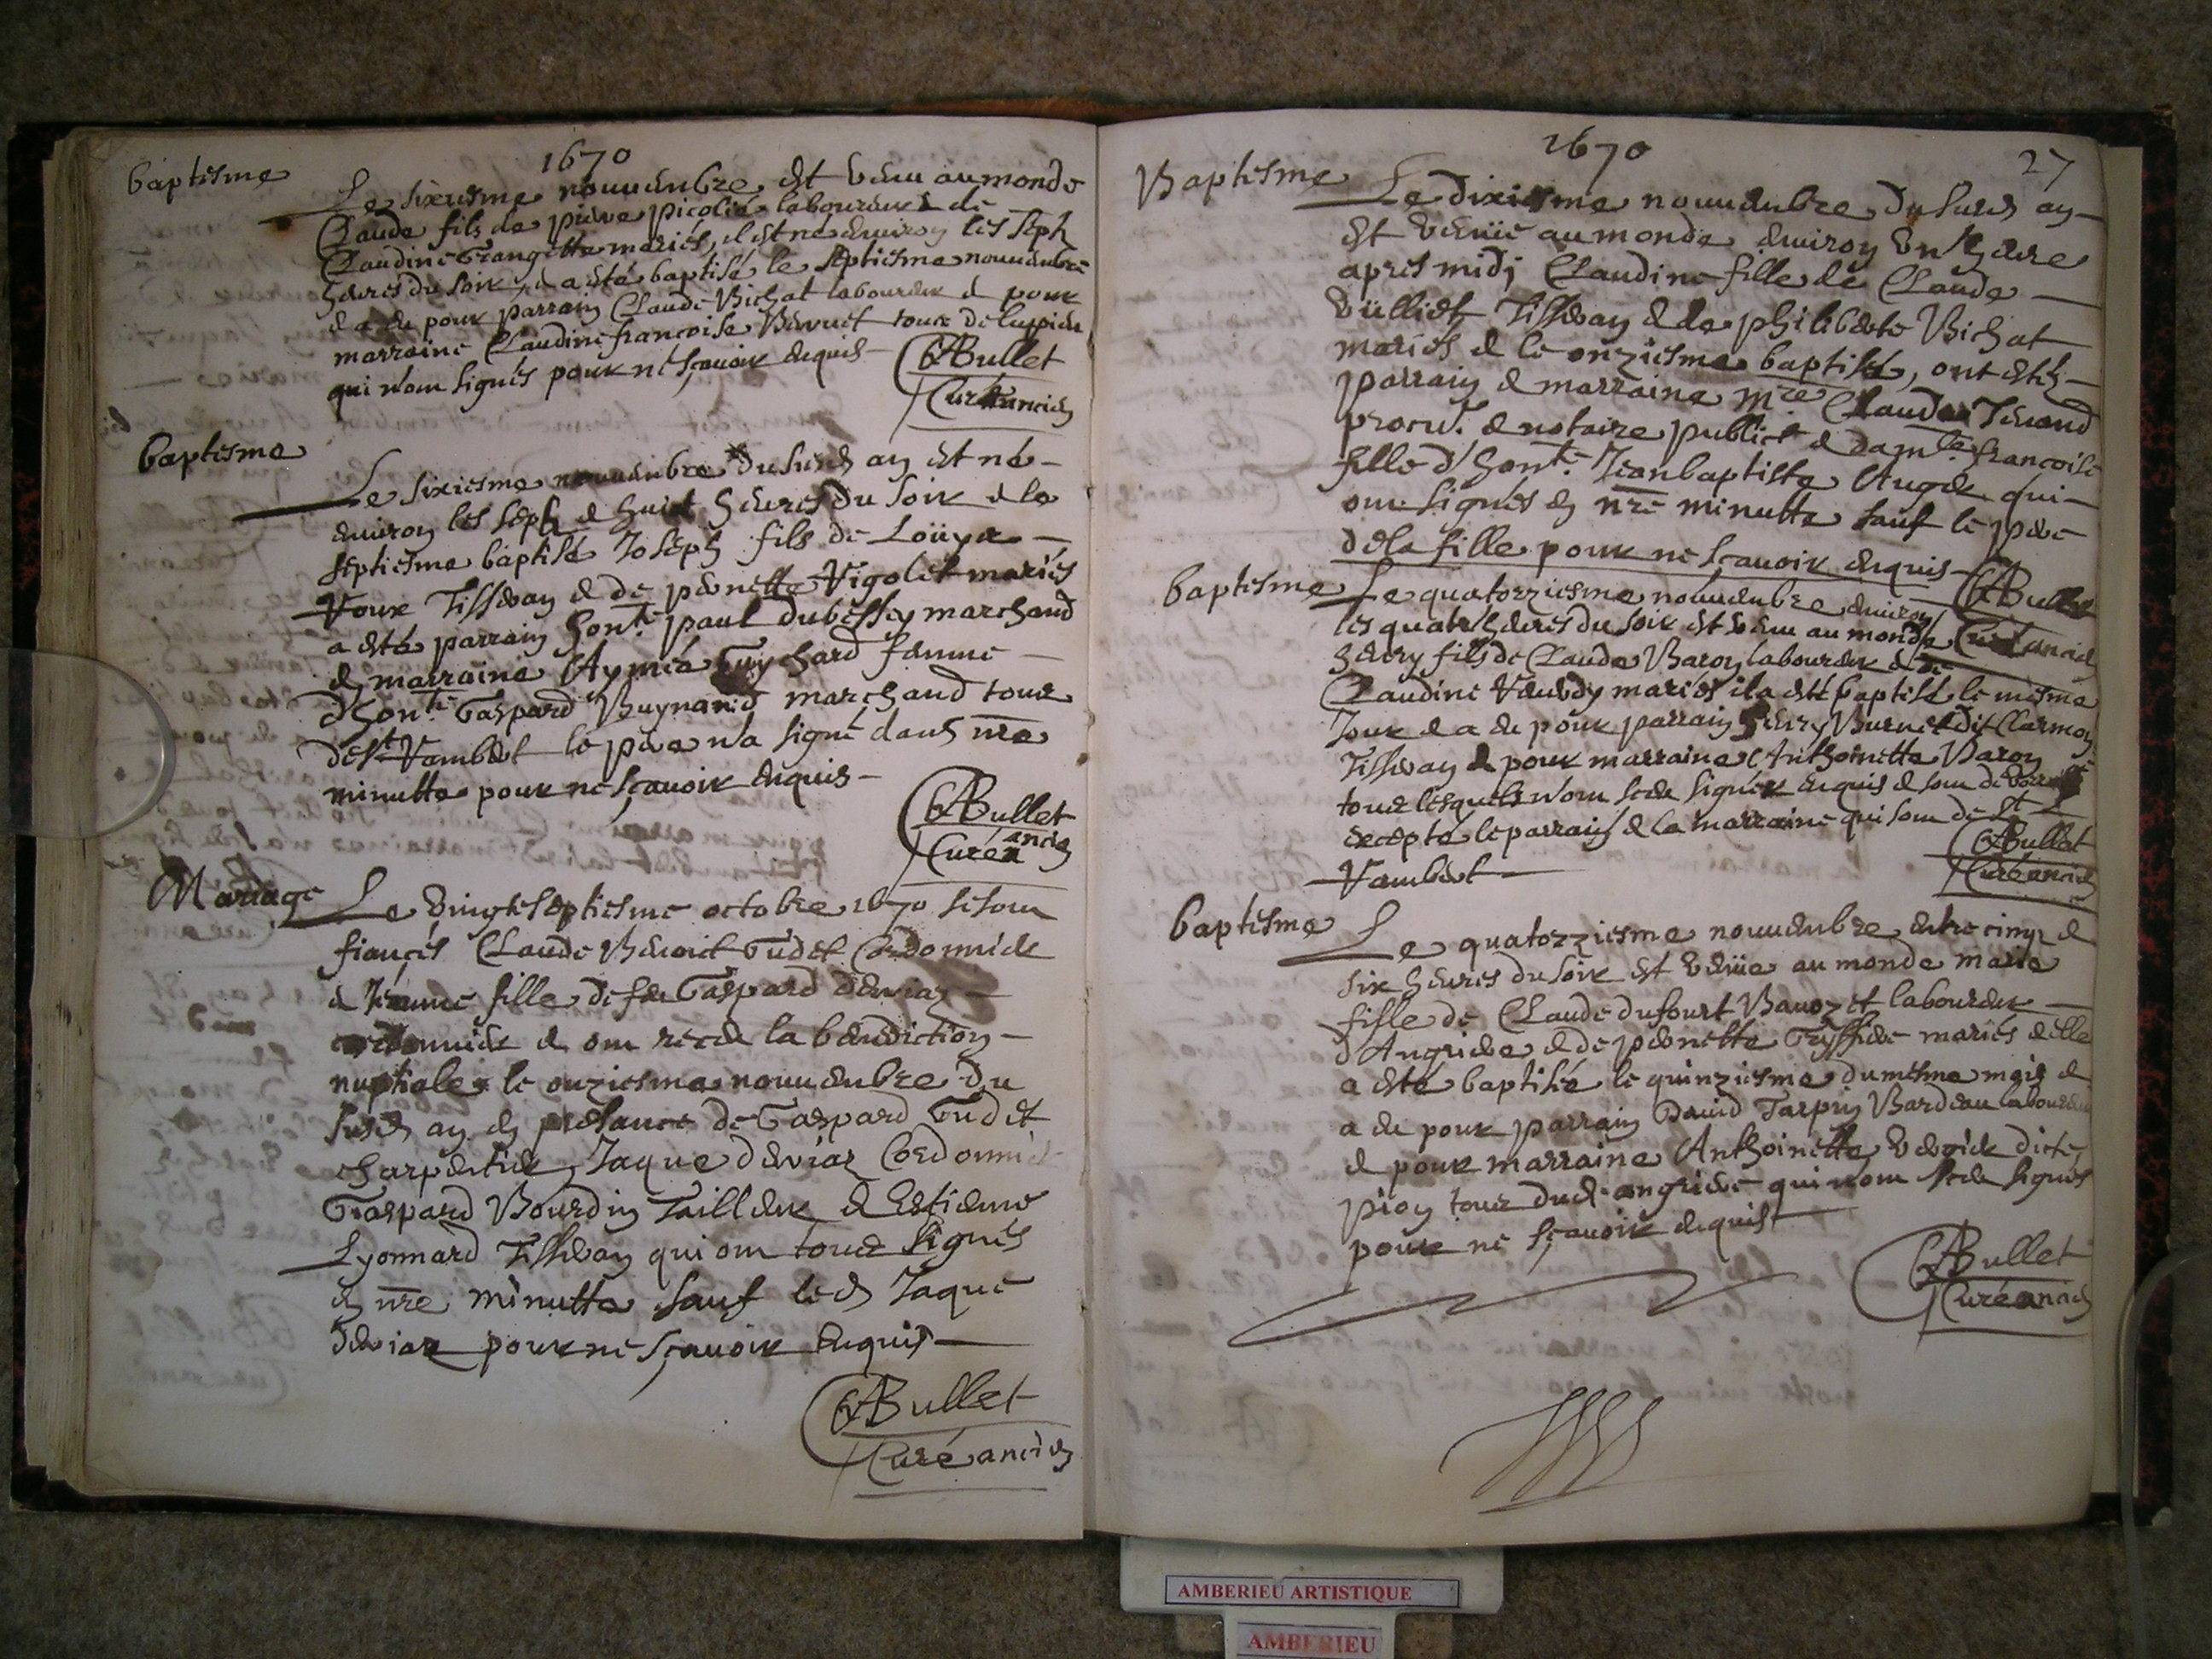 1670
baptesme
Le sixiesme nouuembre est venu au monde
Claude fils de pierre picolié laboureur & de
Claudine Grangette mariés, il est né enuiron les sept
heures du soir, & a esté baptisé le septiesme nouuembre
& a eu pour parrain Claude Bichat laboureur & pour
marraine Claudine francoise Beruet tous de
qui n'ont signés pour ne sçauoir enquis
Bullet
Curé ancien
baptesme
Le sixiesme nouuembre du susd an est né
enuiron les sept & huict heures du soir & le
septiesme baptisé Joseph fils de Loüys
Roux Tisseran & de pernette Vigolet mariés
a esté parrain hont. paul dubessey marchand
& marraine Aymée Guychard femme
d'hont. Gaspard Buynand marchand tous
de St Rambert le pere n'a signé dans nre
minutte pour ne sçauoir enquis
Bullet
Curé ancien
Mariage
Le vingt septiesme octobre 1670 se sont
fiancés Claude Benoit Gudet Cordonnier
& Jeanne fille de feu Gaspard deuiaz
cordonnier & ont receu la benediction
nuptiale le onziesme nouuembre du
susd an en presance de Gaspard Gudet
charpentier, Jaque deuiaz Cordonnier
Gaspard Bourdin Tailleur & Estienne
Lyonnard Tisseran qui ont tous signés
en nre minutte sauf led Jaque
deuiaz pour ne sçauoir enquis
Bullet
Curé ancien
1670
27
Baptesme
Le dixiesme nouuembre du susd an
est venüe au monde enuiron vn heure
apres midi Claudine fille de Claude
vulliet Tisseran & de philiberte Bichat
mariés & le onziesme baptisée, ont estés
parrain & marraine mre Claude Tenand
procur. & notaire public & damlle francoise
fille d'hont. Jean baptiste Auger qui
ont signés en nre minutte sauf le pere
de la fille pour ne sçauoir enquis
Bullet
Curé ancien
baptesme
Le quatorziesme nouuembre enuiron
les quatre heures du soir est venu au monde
henry fils de Claude Baron laboureur & de
Claudine mariés il a esté baptisé le mesme
Jour & a eu pour parrain henry Burnet dit Clarmon
Tisseran & pour marraine Anthoinette Baron
tous lesquels n'ont sceu signer enquis & sont de
excepté le parrain & la marraine qui sont de St
Rambert
Bullet
Curé ancien
baptesme
Le quatorziesme nouuembre entre cinq &
six heures du soir est venüe au monde marie
fille de Claude dufourt Bauozet laboureur
d'Angrieres & de pernette mariés & elle
a esté baptisée le quinziesme du mesme mois &
a eu pour parrain Dauid Tarpin Bardeau laboureur
& pour marraine Anthoinette dicte
pion tous dud angriere qui n'ont sceu signés
pour ne sçauoir enquis
Bullet
Curé ancien
AMBERIEU ARTISTIQUE
AMBERIEU